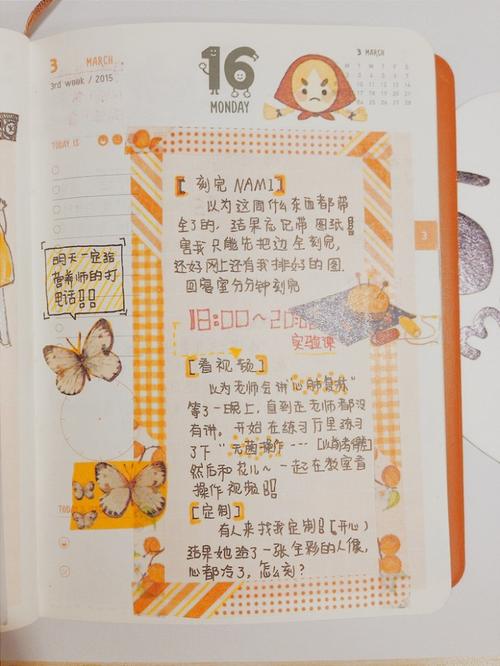 3 MARCH
3rd week / 2015
TODAY IS
16
MONDAY
3 MARCH
3
明天一定给
营养师的打
电话!!
[刻完 NAMI]
以为这周什么东西都带
全了的，结果忘记带图纸!!
害我只能先把边全刻完，
还好网上还有我排好的图.
回寝室分分钟刻完
18:00~20:00
实验课
[看视频]
以为老师会讲“心肺复苏”
等了一晚上，直到走老师都没
有讲。开始在练习万里练习
了下“无菌操作……
然后和花儿~一起在教室看
操作视频!!
[定制]
有人来找我定制!(开心)
结果她给了一张全彩的人像，
心都冷了，怎么刻?